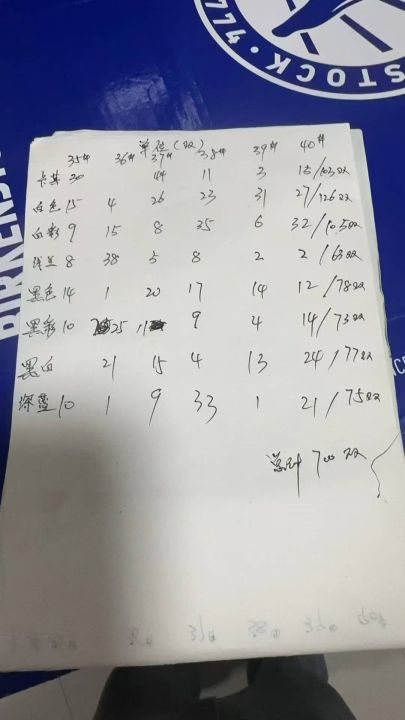 47 · STOCK ·
BIRKENS
单位(双)
35# 36# 37# 38# 39# 40#
卡其 30 44 11 3 15/103双
白色 15 4 26 23 31 27/126双
白彩 9 15 8 35 6 32/105双
浅兰 8 38 5 8 2 2/63双
黑色 14 1 20 17 14 12/78双
黑彩 10 25 11 9 4 14/73双
黑白 21 15 4 13 24/77双
深蓝 10 1 9 33 1 21/75双
总计 700双